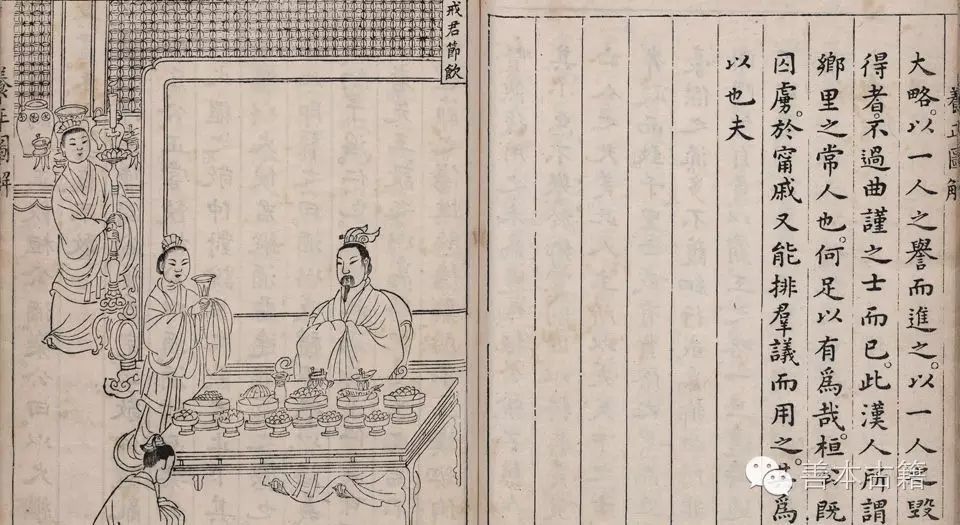 養正圖解
大略。以一人之譽而進之。以一人之毀
得者。不過曲謹之士而已。此漢人所謂
鄉里之常人也。何足以有爲哉。桓公既
囚虜。於甯戚又能排羣議而用之。爲
以也夫
戒君節飲
養正圖解
善本古籍